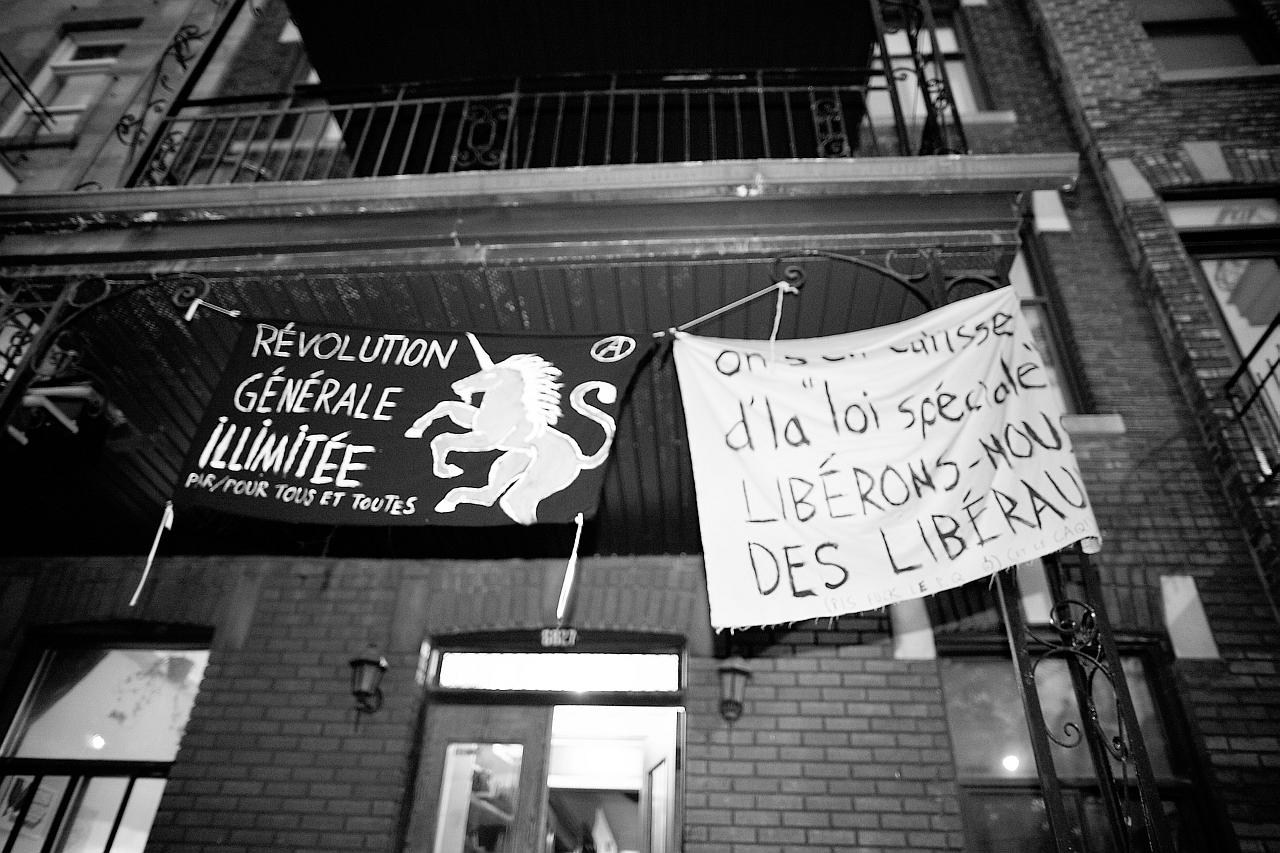 RÉVOLUTION
GÉNÉRALE
ILLIMITÉE
PAR/POUR TOUS ET TOUTES
A
on s'en caïsse
d'la "loi spéciale"
LIBÉRONS-NOUS
DES LIBÉRAU
(PIS FUCK LE P.Q. (ET LE CAQ)